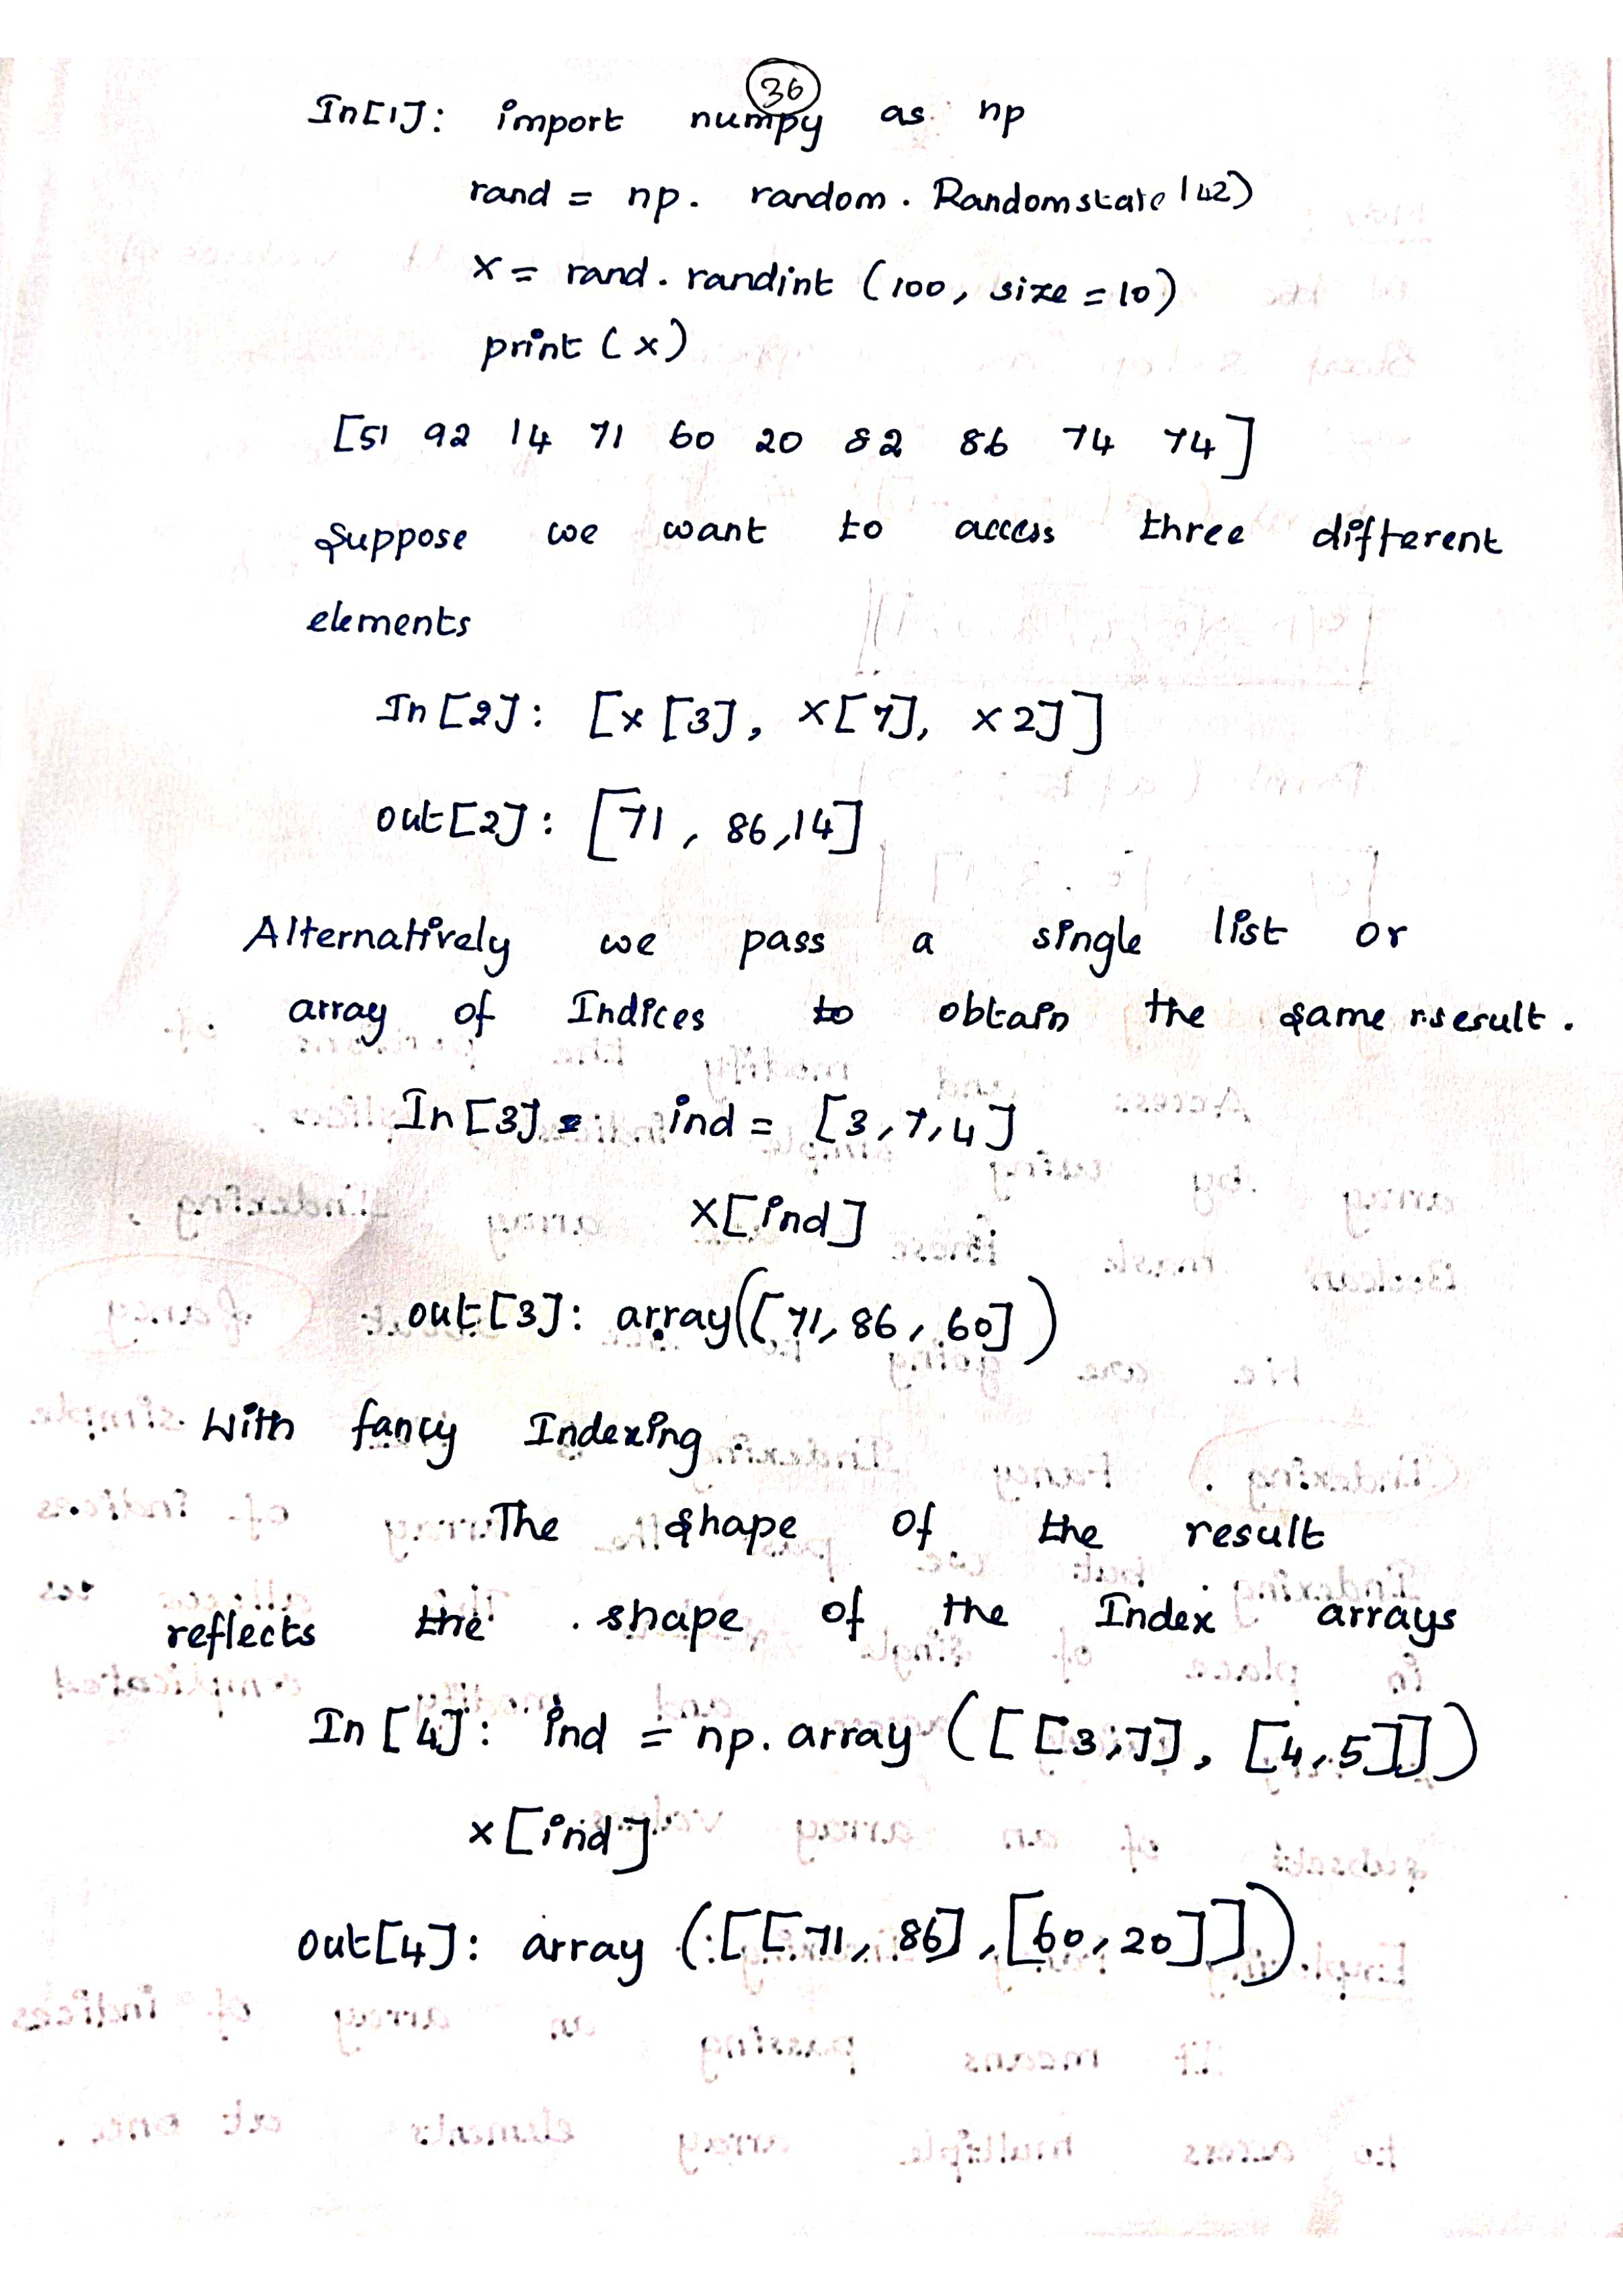 36
In[1]: import numpy as np
rand = np. random. Randomstate (42)
x = rand. randint (100, size = 10)
print (x)
[51 92 14 71 60 20 82 86 74 74]
Suppose we want to access three different
elements
In [2]: [x [3], x[7], x 2]]
out[2]: [71, 86, 14]
Alternatively we pass a single list or
array of Indices to obtain the same
In [3] ind = [3, 7, 4]
x[ind]
out [3]: array([71, 86, 60])
With fancy Indexing
The shape of the result
reflects the shape of the Index arrays
In [4]: ind = np. array ([[3, 7], [4, 5]])
x [ind]
out[4]: array ([[71, 86], [60, 20]])